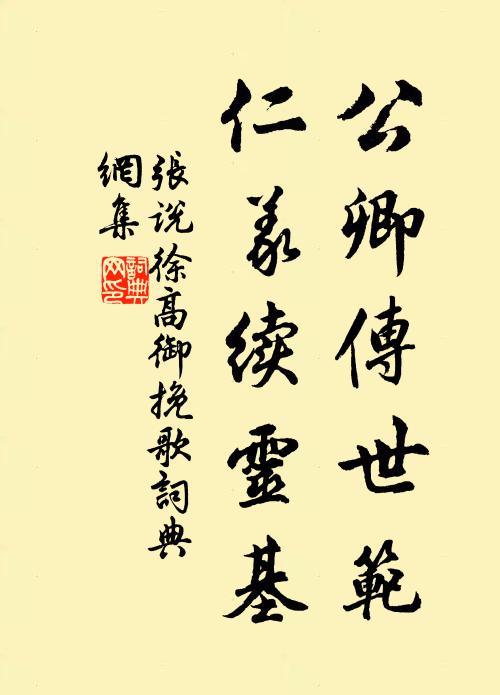 公卿傳世範
仁義續靈基
張说徐高御挽歌詞典
網集
詞典網印